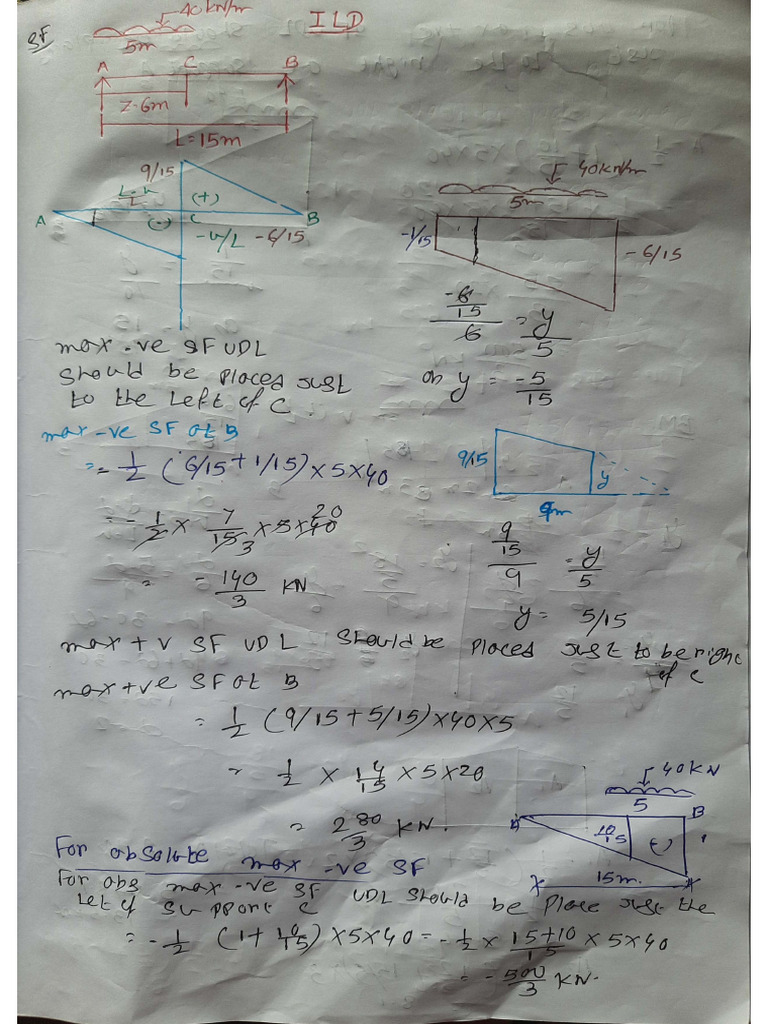 SF
40kn/m
ILD
5m
A C B
Z=6m
L=15m
9/15
L-u/L
(+)
A (-) C B
-u/L -6/15
40kn/m
5m
-1/15
-6/15
-6/15 / 6 = y/5
or y = -5/15
max -ve SF UDL
should be placed just
to the left of C
max -ve SF at B
= - 1/2 (6/15 + 1/15) x 5 x 40
= - 1/2 x 7/15 x 5 x 40
20
3
= - 140/3 KN
9/15
y
9m
9/15 / 9 = y/5
y = 5/15
max + v SF UDL should be placed just to be right
of C
max +ve SF at B
= 1/2 (9/15 + 5/15) x 40 x 5
= 1/2 x 14/15 x 5 x 20
= 280/3 KN.
40KN
5
A B
10/15
(-)
1
15m.
For absolute max -ve SF
For abs max -ve SF UDL should be place just the
Let of support C
= - 1/2 (1 + 10/15) x 5 x 40 = - 1/2 x 15+10/15 x 5 x 40
= - 500/3 KN.